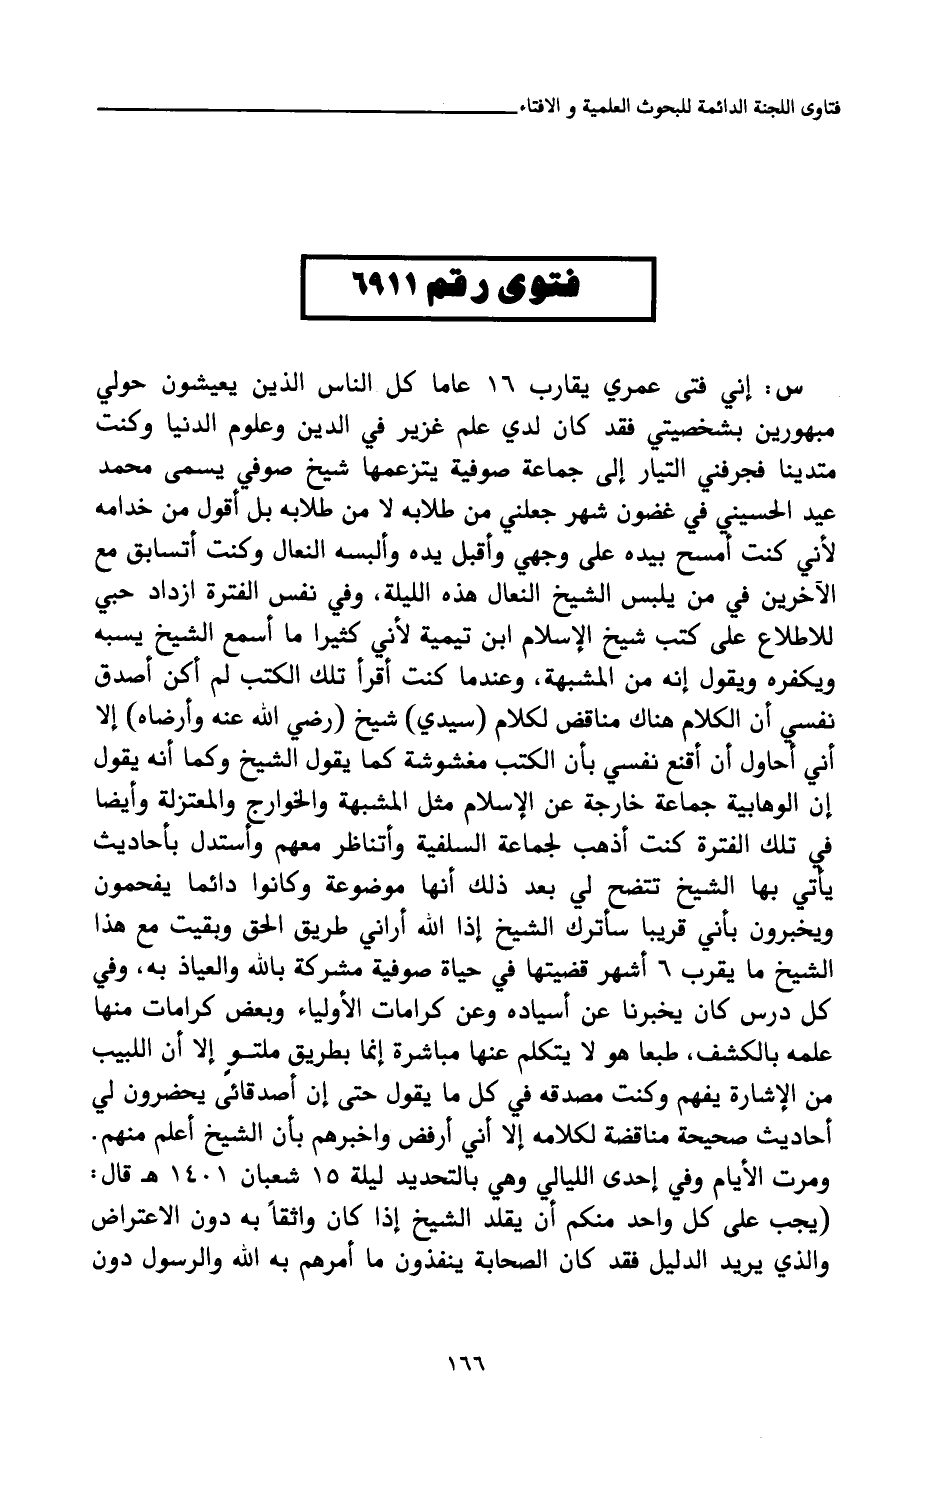 فتاوى اللجنة الدائمة للبحوث العلمية و الافتاء
فتوى رقم ٦٩١١
س : إني فتى عمري يقارب ١٦ عاما كل الناس الذين يعيشون حولي
مبهورين بشخصيتي فقد كان لدي علم غزير في الدين وعلوم الدنيا وكنت
متدينا فجرفني التيار إلى جماعة صوفية يتزعمها شيخ صوفي يسمى محمد
عيد الحسيني في غضون شهر جعلني من طلابه لا من طلابه بل أقول من خدامه
لأني كنت أمسح بيده على وجهي وأقبل يده وألبسه النعال وكنت أتسابق مع
الآخرين في من يلبس الشيخ النعال هذه الليلة، وفي نفس الفترة ازداد حبي
للاطلاع على كتب شيخ الإسلام ابن تيمية لأني كثيرا ما أسمع الشيخ يسبه
ويكفره ويقول إنه من المشبهة، وعندما كنت أقرأ تلك الكتب لم أكن أصدق
نفسي أن الكلام هناك مناقض لكلام (سيدي) شيخ (رضي الله عنه وأرضاه) إلا
أني أحاول أن أقنع نفسي بأن الكتب مغشوشة كما يقول الشيخ وكما أنه يقول
إن الوهابية جماعة خارجة عن الإسلام مثل المشبهة والخوارج والمعتزلة وأيضا
في تلك الفترة كنت أذهب لجماعة السلفية وأتناظر معهم وأستدل بأحاديث
يأتي بها الشيخ تتضح لي بعد ذلك أنها موضوعة وكانوا دائما يفحمون
ويخبرون بأني قريبا سأترك الشيخ إذا الله أراني طريق الحق وبقيت مع هذا
الشيخ ما يقرب ٦ أشهر قضيتها في حياة صوفية مشركة بالله والعياذ به، وفي
كل درس كان يخبرنا عن أسياده وعن كرامات الأولياء وبعض كرامات منها
علمه بالكشف، طبعا هو لا يتكلم عنها مباشرة إنما بطريق ملتوٍ إلا أن اللبيب
من الإشارة يفهم وكنت مصدقه في كل ما يقول حتى إن أصدقائي يحضرون لي
أحاديث صحيحة مناقضة لكلامه إلا أني أرفض واخبرهم بأن الشيخ أعلم منهم.
ومرت الأيام وفي إحدى الليالي وهي بالتحديد ليلة ١٥ شعبان ١٤٠١ هـ قال:
(يجب على كل واحد منكم أن يقلد الشيخ إذا كان واثقاً به دون الاعتراض
والذي يريد الدليل فقد كان الصحابة ينفذون ما أمرهم به الله والرسول دون
١٦٦